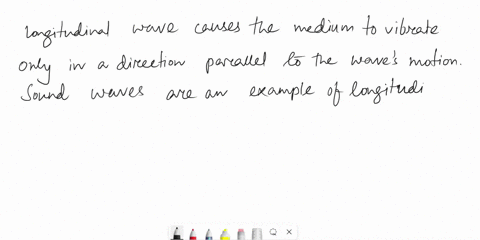 Longitudinal wave causes the medium to vibrate
only in a direction parallel to the wave's motion.
Sound waves are an example of longitudi